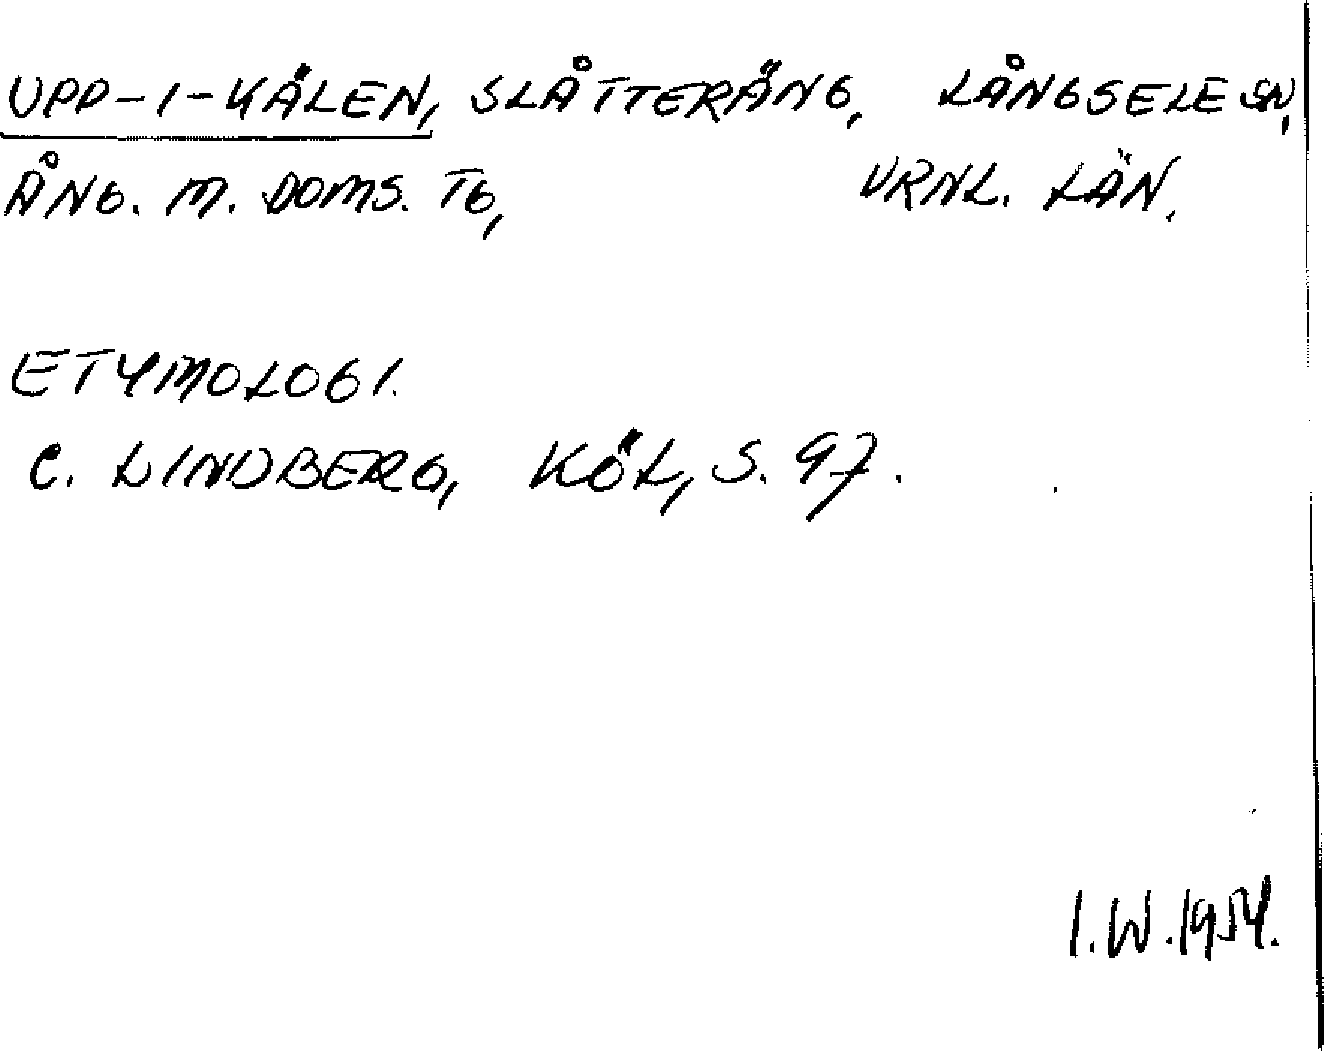 UPP-I-KÄLEN, SLÅTTERÄNG, LÅNGSELE SN,
ÅNG. M. DOMS. TG, VRNL. LÄN.
ETYMOLOGI.
C. LINDBERG, KÖL, S. 97.
I.W. 1954.